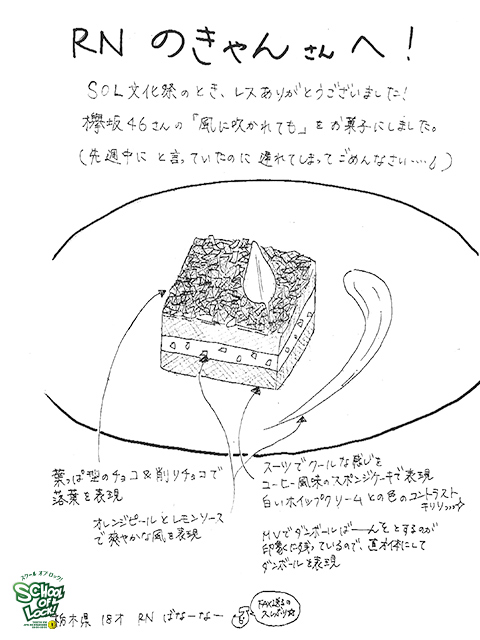 RN のきゃんさんへ！
SOL文化祭のとき、レスありがとうございました！
欅坂46さんの「風に吹かれても」をお菓子にしました。
(先週中にと言っていたのに遅れてしまってごめんなさい…)
葉っぱ型のチョコ&削りチョコで
落葉を表現
オレンジピールとレモンソース
で爽やかな風を表現
スーツでクールな感じを
コーヒー風味のスポンジケーキで表現
白いホイップクリームとの色のコントラスト
キリリッ
MVでダンボールばーんっとするのが
印象に残っているので、直方体にして
ダンボールを表現
スクール オブ ロック!
SCHOOL OF LOCK!
栃木県 18才 RN ばなーなー
FAX送るの